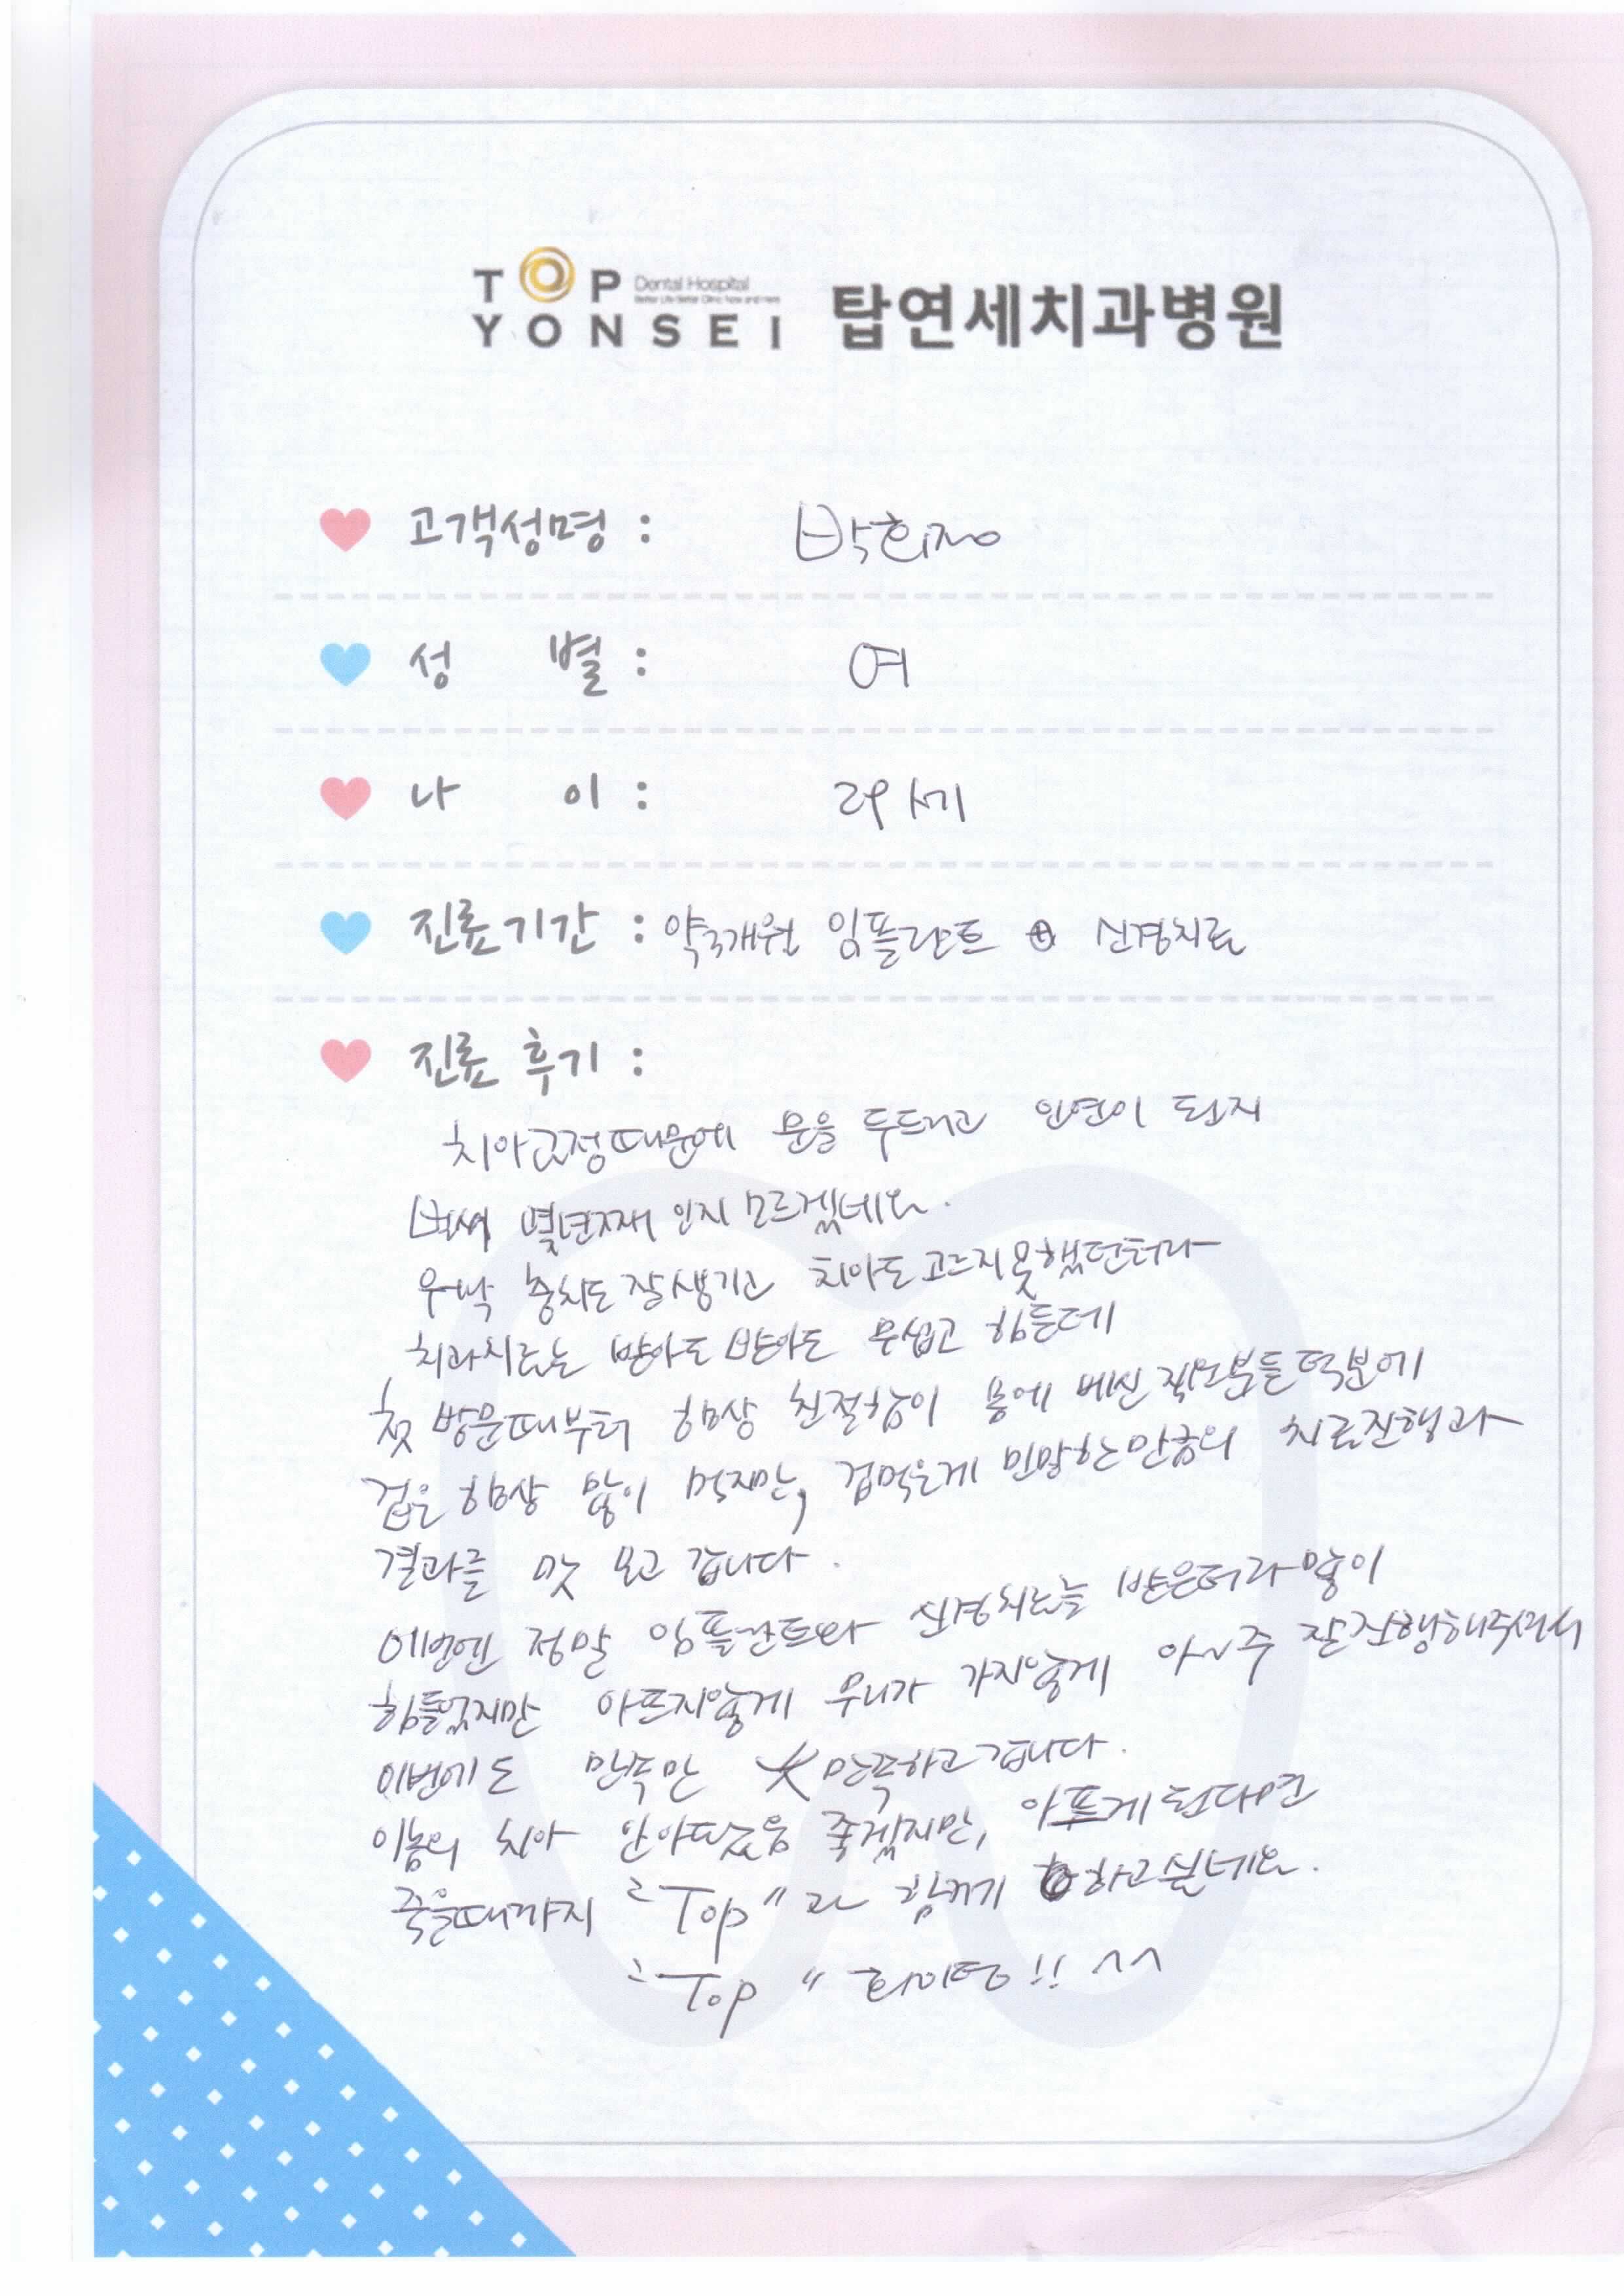 TOP Dental Hospital
YONSEI 탑연세치과병원
고객성명 : 박희정
성 별 : 여
나 이 : 29세
진료기간 : 약3개월 임플란트 ⊕ 신경치료
진료 후기 :
치아교정때문에 문을 두드리고 인연이 된지
벌써 몇년째 인지 모르겠네요.
워낙 충치도 잘생기고 치아도 고르지못했던터라
치과치료는 받아도 받아도 무섭고 힘든데
첫 방문때부터 항상 친절함이 몸에 베신 직원분들덕분에
겁은 항상 많이 먹지만, 겁먹은게 민망하는만큼의 치료진행과
결과를 맛 보고 갑니다.
이번엔 정말 임플란트와 신경치료를 받은터라 많이
힘들었지만 아프지않게 무리가 가지않게 아~주 잘진행해주셔서
이번에도 만족만 大만족하고갑니다.
이놈의 치아 안아팠음 좋겠지만, 아프게된다면
죽을때까지 "Top"과 함께 하고싶네요.
"Top" 화이팅!! ^^